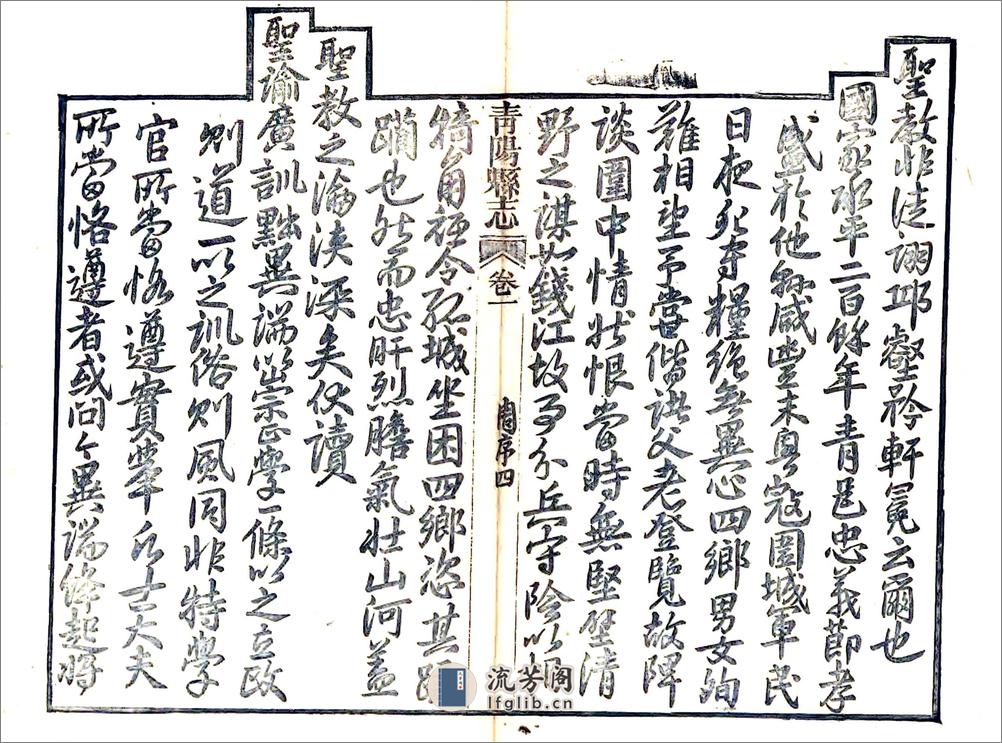 聖教非徒詡邛壑矜軒冕云爾也
國家承平二百餘年青邑忠義節孝
盛於他縣咸豐末粵寇圍城軍民
日夜死守糧絕無異心四鄉男女殉
難相望予當偕諸父老登覽故陴
談圍中情狀恨當時無堅壁清
野之謀如錢江故事分兵守險以相
犄角
青陽縣志
卷一
周序四
徒令孤城坐困四鄉恣其蹂
躪也然而忠肝烈膽氣壯山河蓋
聖教之淪浹深矣伏讀
聖諭廣訓黜異端以崇正學一條以之立政
則道一以之訓俗則風同非特學
官所當恪遵實率氏士大夫
所當恪遵者或問今異端絳起將
流芳閣
lfglib.cn